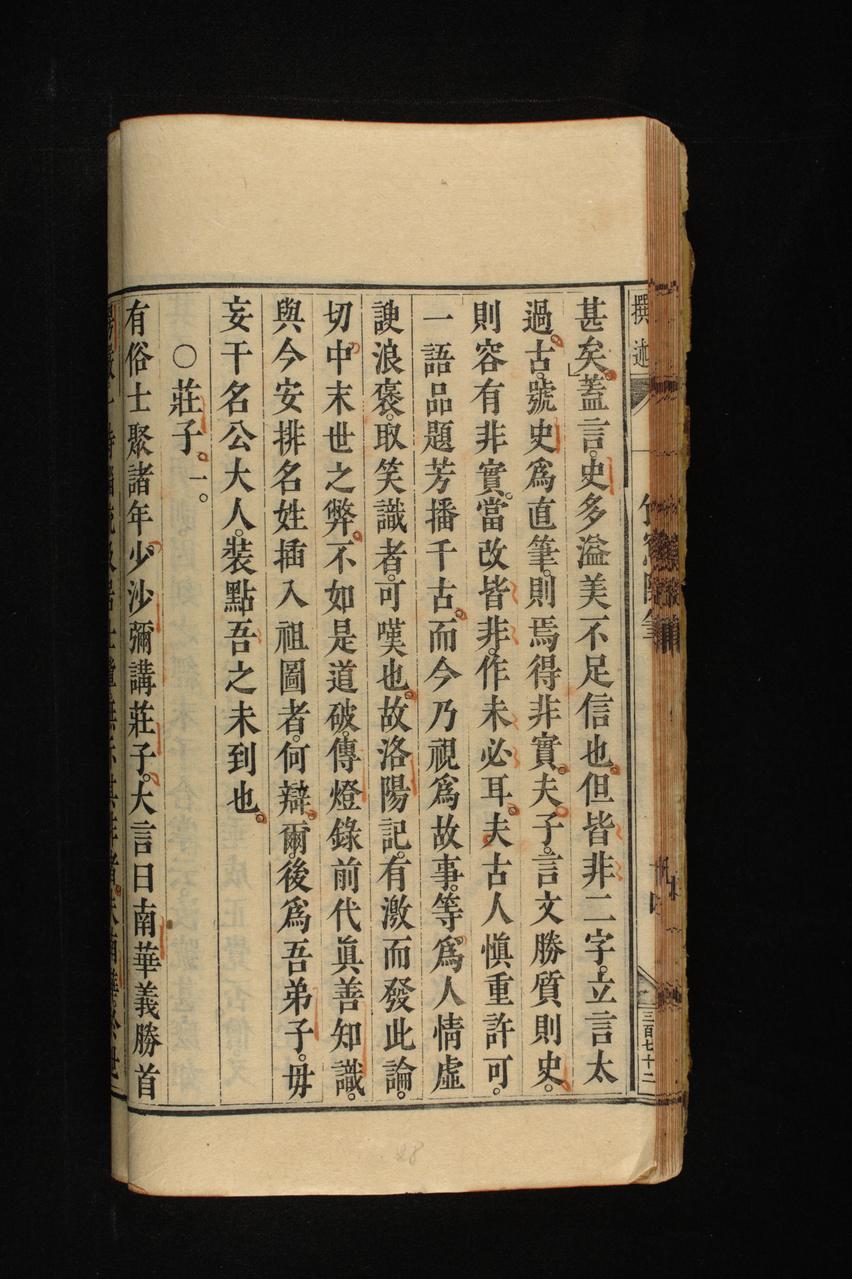 撰述
三百七十二
甚矣蓋言史多溢美不足信也但皆非二字立言太
過古號史爲直筆則焉得非實夫子言文勝質則史
則容有非實當改皆非作未必耳夫古人愼重許可
一語品題芳播千古而今乃視爲故事等爲人情虛
諛浪褒取笑識者可嘆也故洛陽記有激而發此論
切中末世之弊不如是道破傳燈錄前代眞善知識
與今安排名姓插入祖圖者何辯爾後爲吾弟子毋
妄干名公大人裝點吾之未到也
○莊子一
有俗士聚諸年少沙彌講莊子大言曰南華義勝首